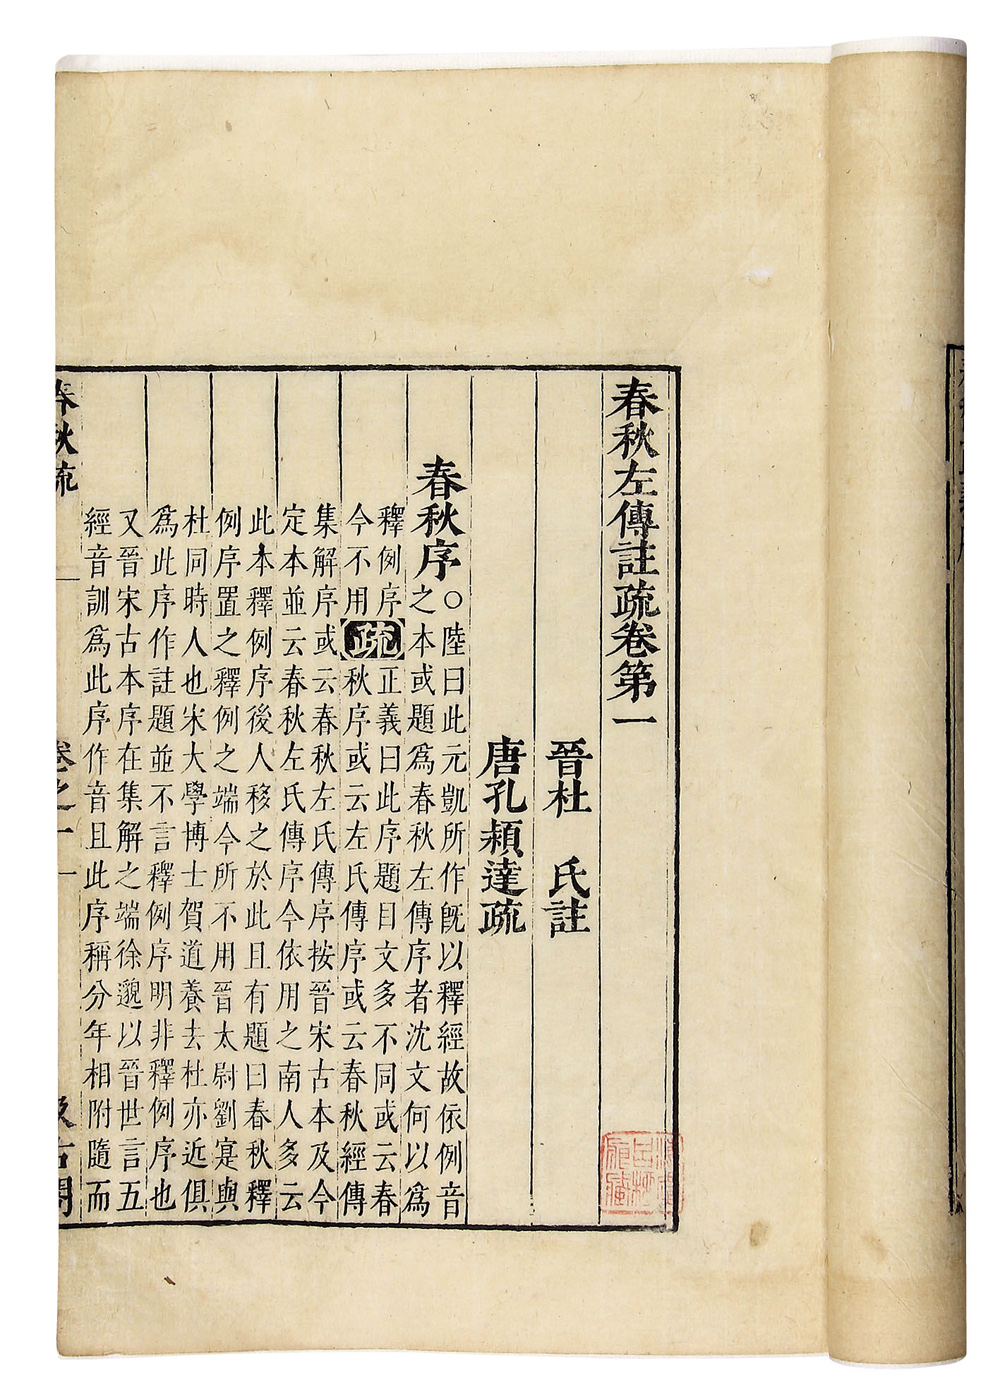 春秋左傳註疏卷第一
晉杜　氏註
唐孔穎達疏
春秋序
○陸曰此元凱所作旣以釋經故依例音
之本或題爲春秋左傳序者沈文何以爲
釋例序
今不用
疏
正義曰此序題目文多不同或云春
秋序或云左氏傳序或云春秋經傳
集解序或云春秋左氏傳序按晉宋古本及今
定本並云春秋左氏傳序今依用之南人多云
此本釋例序後人移之於此且有題曰春秋釋
例序置之釋例之端今所不用晉太尉劉寔與
杜同時人也宋大學博士賀道養去杜亦近俱
爲此序作註題並不言釋例序明非釋例序也
又晉宋古本序在集解之端徐邈以晉世言五
經音訓爲此序作音且此序稱分年相附隨而
春秋疏
卷之一
一
汲古閣